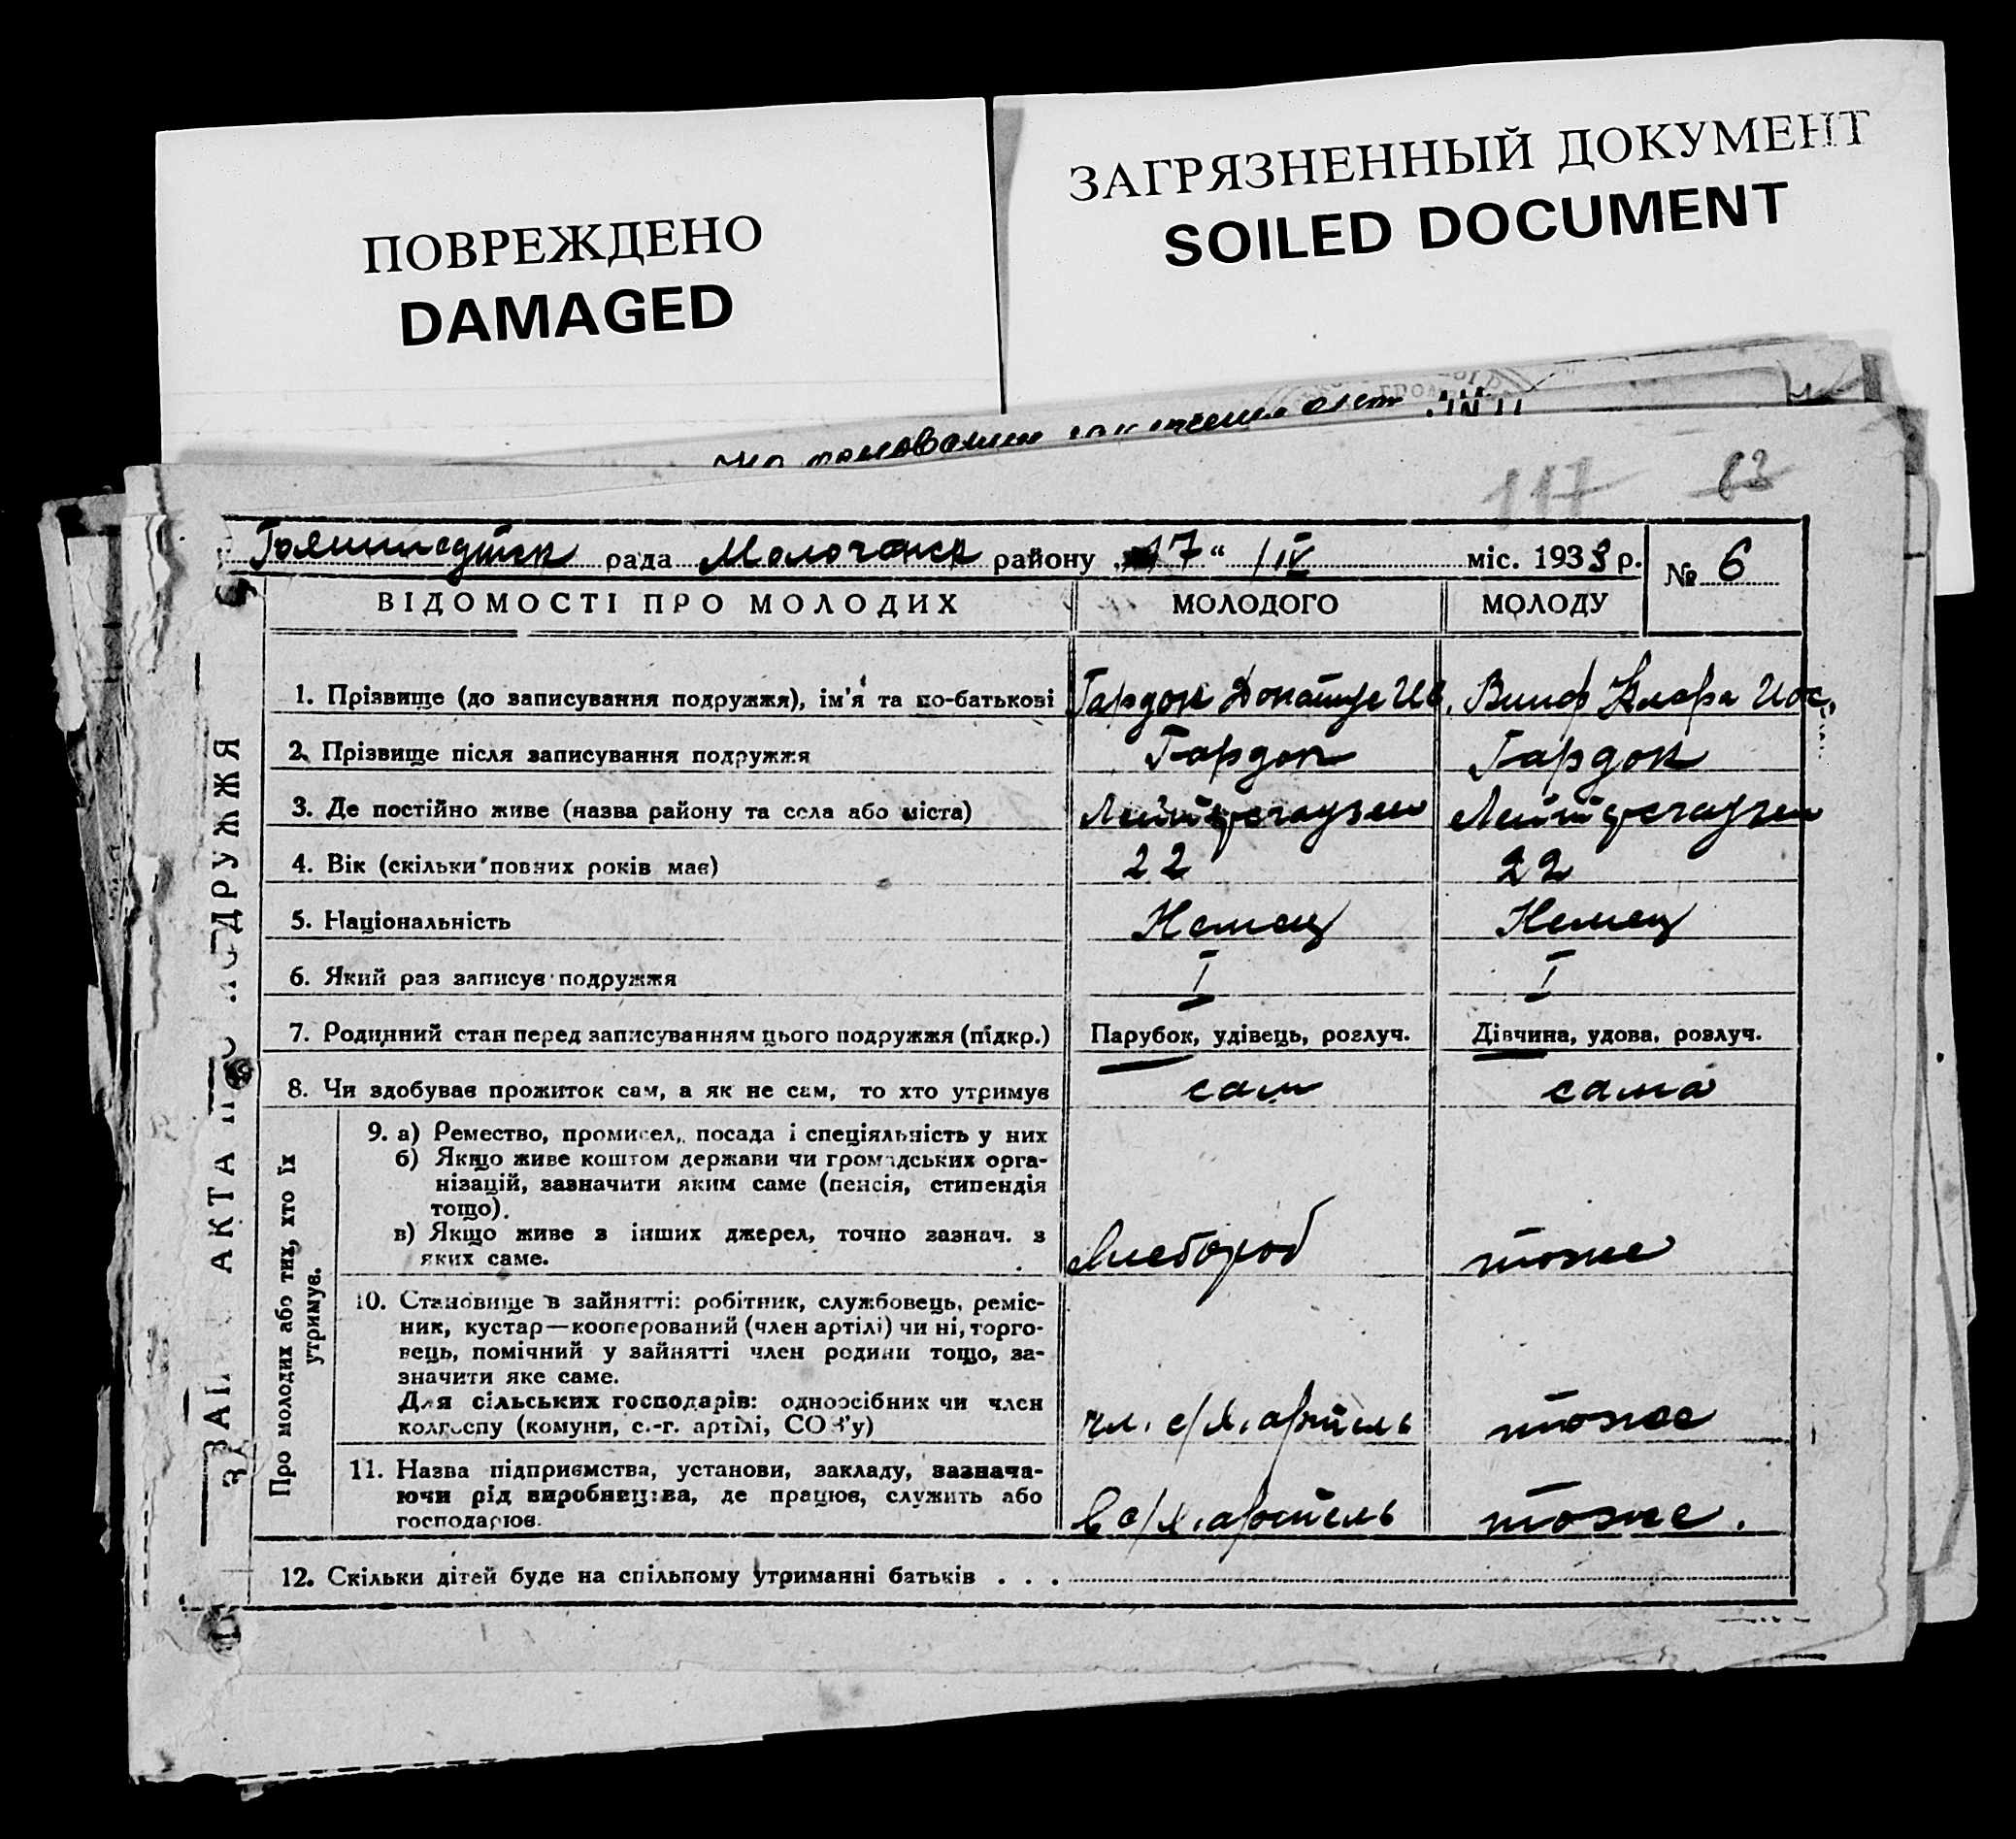 ПОВРЕЖДЕНО
DAMAGED
ЗАГРЯЗНЕННЫЙ ДОКУМЕНТ
SOILED DOCUMENT
на основании
117 63
рада Молочанск району 17 " /IV міс. 1933 р. № 6
ВІДОМОСТІ ПРО МОЛОДИХ МОЛОДОГО МОЛОДУ
ЗАПИС АКТА ПРО ПОДРУЖЖЯ
1. Прізвище (до записування подружжя), ім'я та по-батькові Гардок Донатус Ив. Винф Клара Иос.
2. Прізвище після записування подружжя Гардок Гардок
3. Де постійно живе (назва району та села або міста) Лейтерсгаузен Лейтерсгаузен
4. Вік (скільки повних років має) 22 22
5. Національність Немец Немец
6. Який раз записує подружжя I I
7. Родинний стан перед записуванням цього подружжя (підкр.) Парубок, удівець, розлуч. Дівчина, удова, розлуч.
8. Чи здобуває прожиток сам, а як не сам, то хто утримує сам сама
Про молодих або тих, хто їх
утримує.
9. а) Ремество, промисел, посада і спеціяльність у них
б) Якщо живе коштом держави чи громадських орга-
нізацій, зазначити яким саме (пенсія, стипендія
тощо).
в) Якщо живе з інших джерел, точно зазнач. з
яких саме.
Хлебороб тоже
10. Становище в зайнятті: робітник, службовець, реміс-
ник, кустар—кооперований (член артілі) чи ні, торго-
вець, помічний у зайнятті член родини тощо, за-
значити яке саме.
Для сільських господарів: одноосібник чи член
колгоспу (комуни, с.-г. артілі, СОЗ'у)
чл. с/х. артель тоже
11. Назва підприємства, установи, закладу, зазнача-
ючи рід виробництва, де працює, служить або
господарює.
В с/х. артель тоже.
12. Скільки дітей буде на спільному утриманні батьків . . .